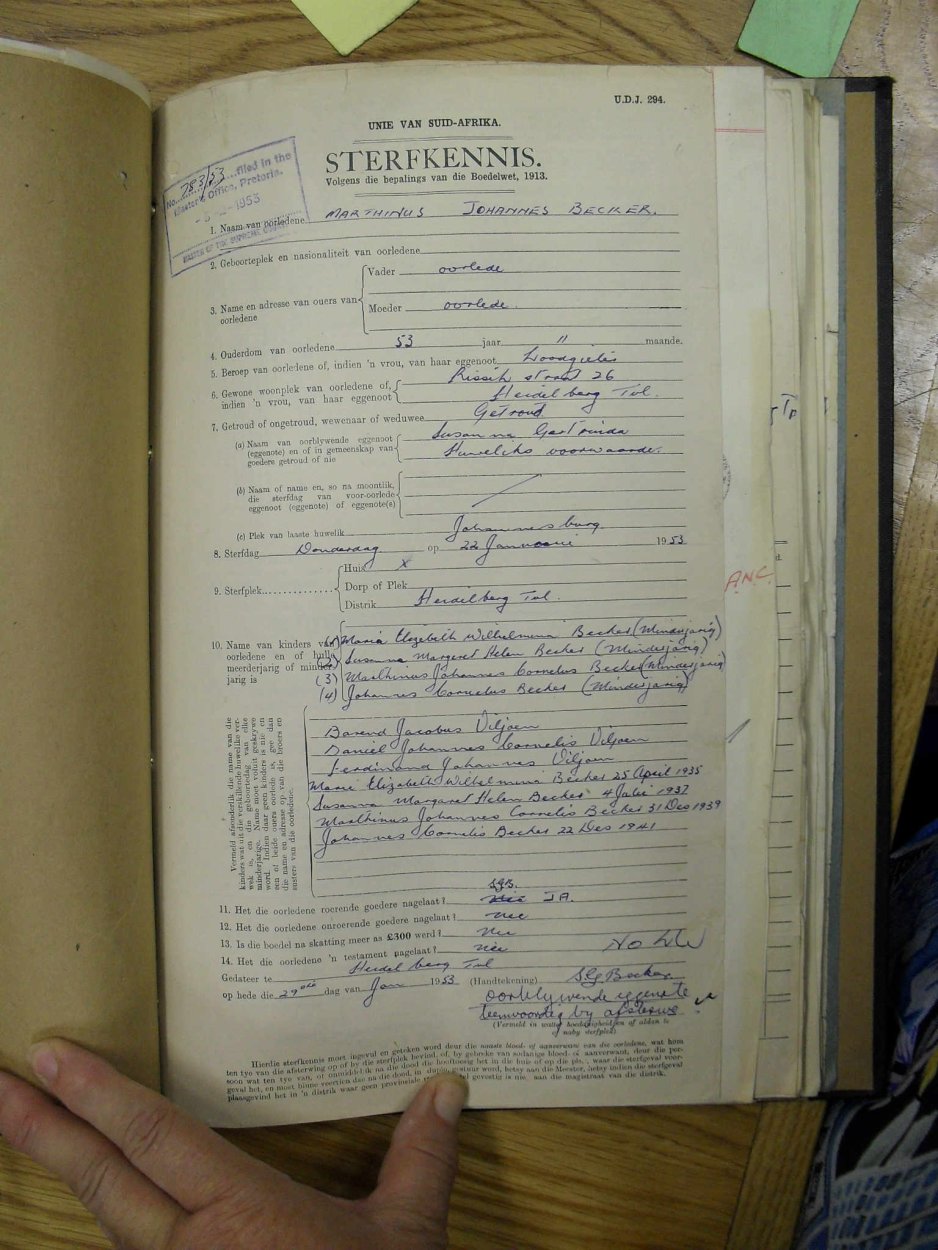 U.D.J. 294.
UNIE VAN SUID-AFRIKA.
STERFKENNIS.
Volgens die bepalings van die Boedelwet, 1913.
No. 783/53 filed in the
Master's Office, Pretoria.
1953
MASTER OF THE SUPREME COURT
1. Naam van oorledene MARTHINUS JOHANNES BECKER.
2. Geboorteplek en nasionaliteit van oorledene
3. Name en adresse van ouers van oorledene
Vader oorlede
Moeder oorlede
4. Ouderdom van oorledene 53 jaar " maande.
5. Beroep van oorledene of, indien 'n vrou, van haar eggenoot Loodgieter
6. Gewone woonplek van oorledene of, indien 'n vrou, van haar eggenoot
Rissik straat 26
Heidelberg Tvl.
7. Getroud of ongetroud, wewenaar of weduwee Getroud
(a) Naam van oorblywende eggenoot
(eggenote) en of in gemeenskap van
goedere getroud of nie
Susanna Gertruida
Huweliks voorwaarde.
(b) Naam of name en, so na moontlik,
die sterfdag van voor-oorlede
eggenoot (eggenote) of eggenote(s)
(c) Plek van laaste huwelik Johannesburg
8. Sterfdag Donderdag op 22 Januarie 1953
9. Sterfplek
Huis X
Dorp of Plek
Distrik Heidelberg Tvl.
A.N.C.
10. Name van kinders van
oorledene en of hulle
meerderjarig of minder-
jarig is
(1) Maria Elizabeth Wilhelmina Becker (Minderjarig)
(2) Susanna Margaret Helen Becker (Minderjarig)
(3) Marthinus Johannes Cornelus Becker (Minderjarig)
(4) Johannes Cornelus Becker (Minderjarig)
Vermeld afsonderlik die name van die
kinders wat uit die verskillende huwelike ver-
wek is, en die geboortedag van elke
minderjarige. Name moet voluit geskrywe
word. Indien daar geen kinders is nie en
een of beide ouers oorlede is, gee dan
die name en adresse op van die broers en
susters van die oorledene.
Barend Jacobus Viljoen
Daniel Johannes Cornelis Viljoen
Ferdinand Johannes Viljoen
Marie Elizabeth Wilhelmina Becker 25 April 1935
Susanna Margaret Helen Becker 4 Julie 1937
Marthinus Johannes Cornelis Becker 31 Des 1939
Johannes Cornelis Becker 22 Des 1941
11. Het die oorledene roerende goedere nagelaat? SGB. JA.
12. Het die oorledene onroerende goedere nagelaat? nee
13. Is die boedel na skatting meer as £300 werd? Nee
14. Het die oorledene 'n testament nagelaat? nee
Gedateer te Heidelberg Tvl
op hede die 29ste dag van Jan 1953 (Handtekening) SG Becker
oorblywende eggenote
teenwoordig by afsterwe
(Vermeld in watter hoedanigheid; en of aldan te
naby sterfplek)
Hierdie sterfkennis moet ingevul en geteken word deur die naaste bloed- of aanverwant van die oorledene, wat hom
ten tye van die afsterwing op of by die sterfplek bevind, of, by gebreke van sodanige bloed- of aanverwant, deur die per-
soon wat ten tye van, of onmiddellik na die dood die hooftoesig het in die huis of op die plek, waar die sterfgeval voor-